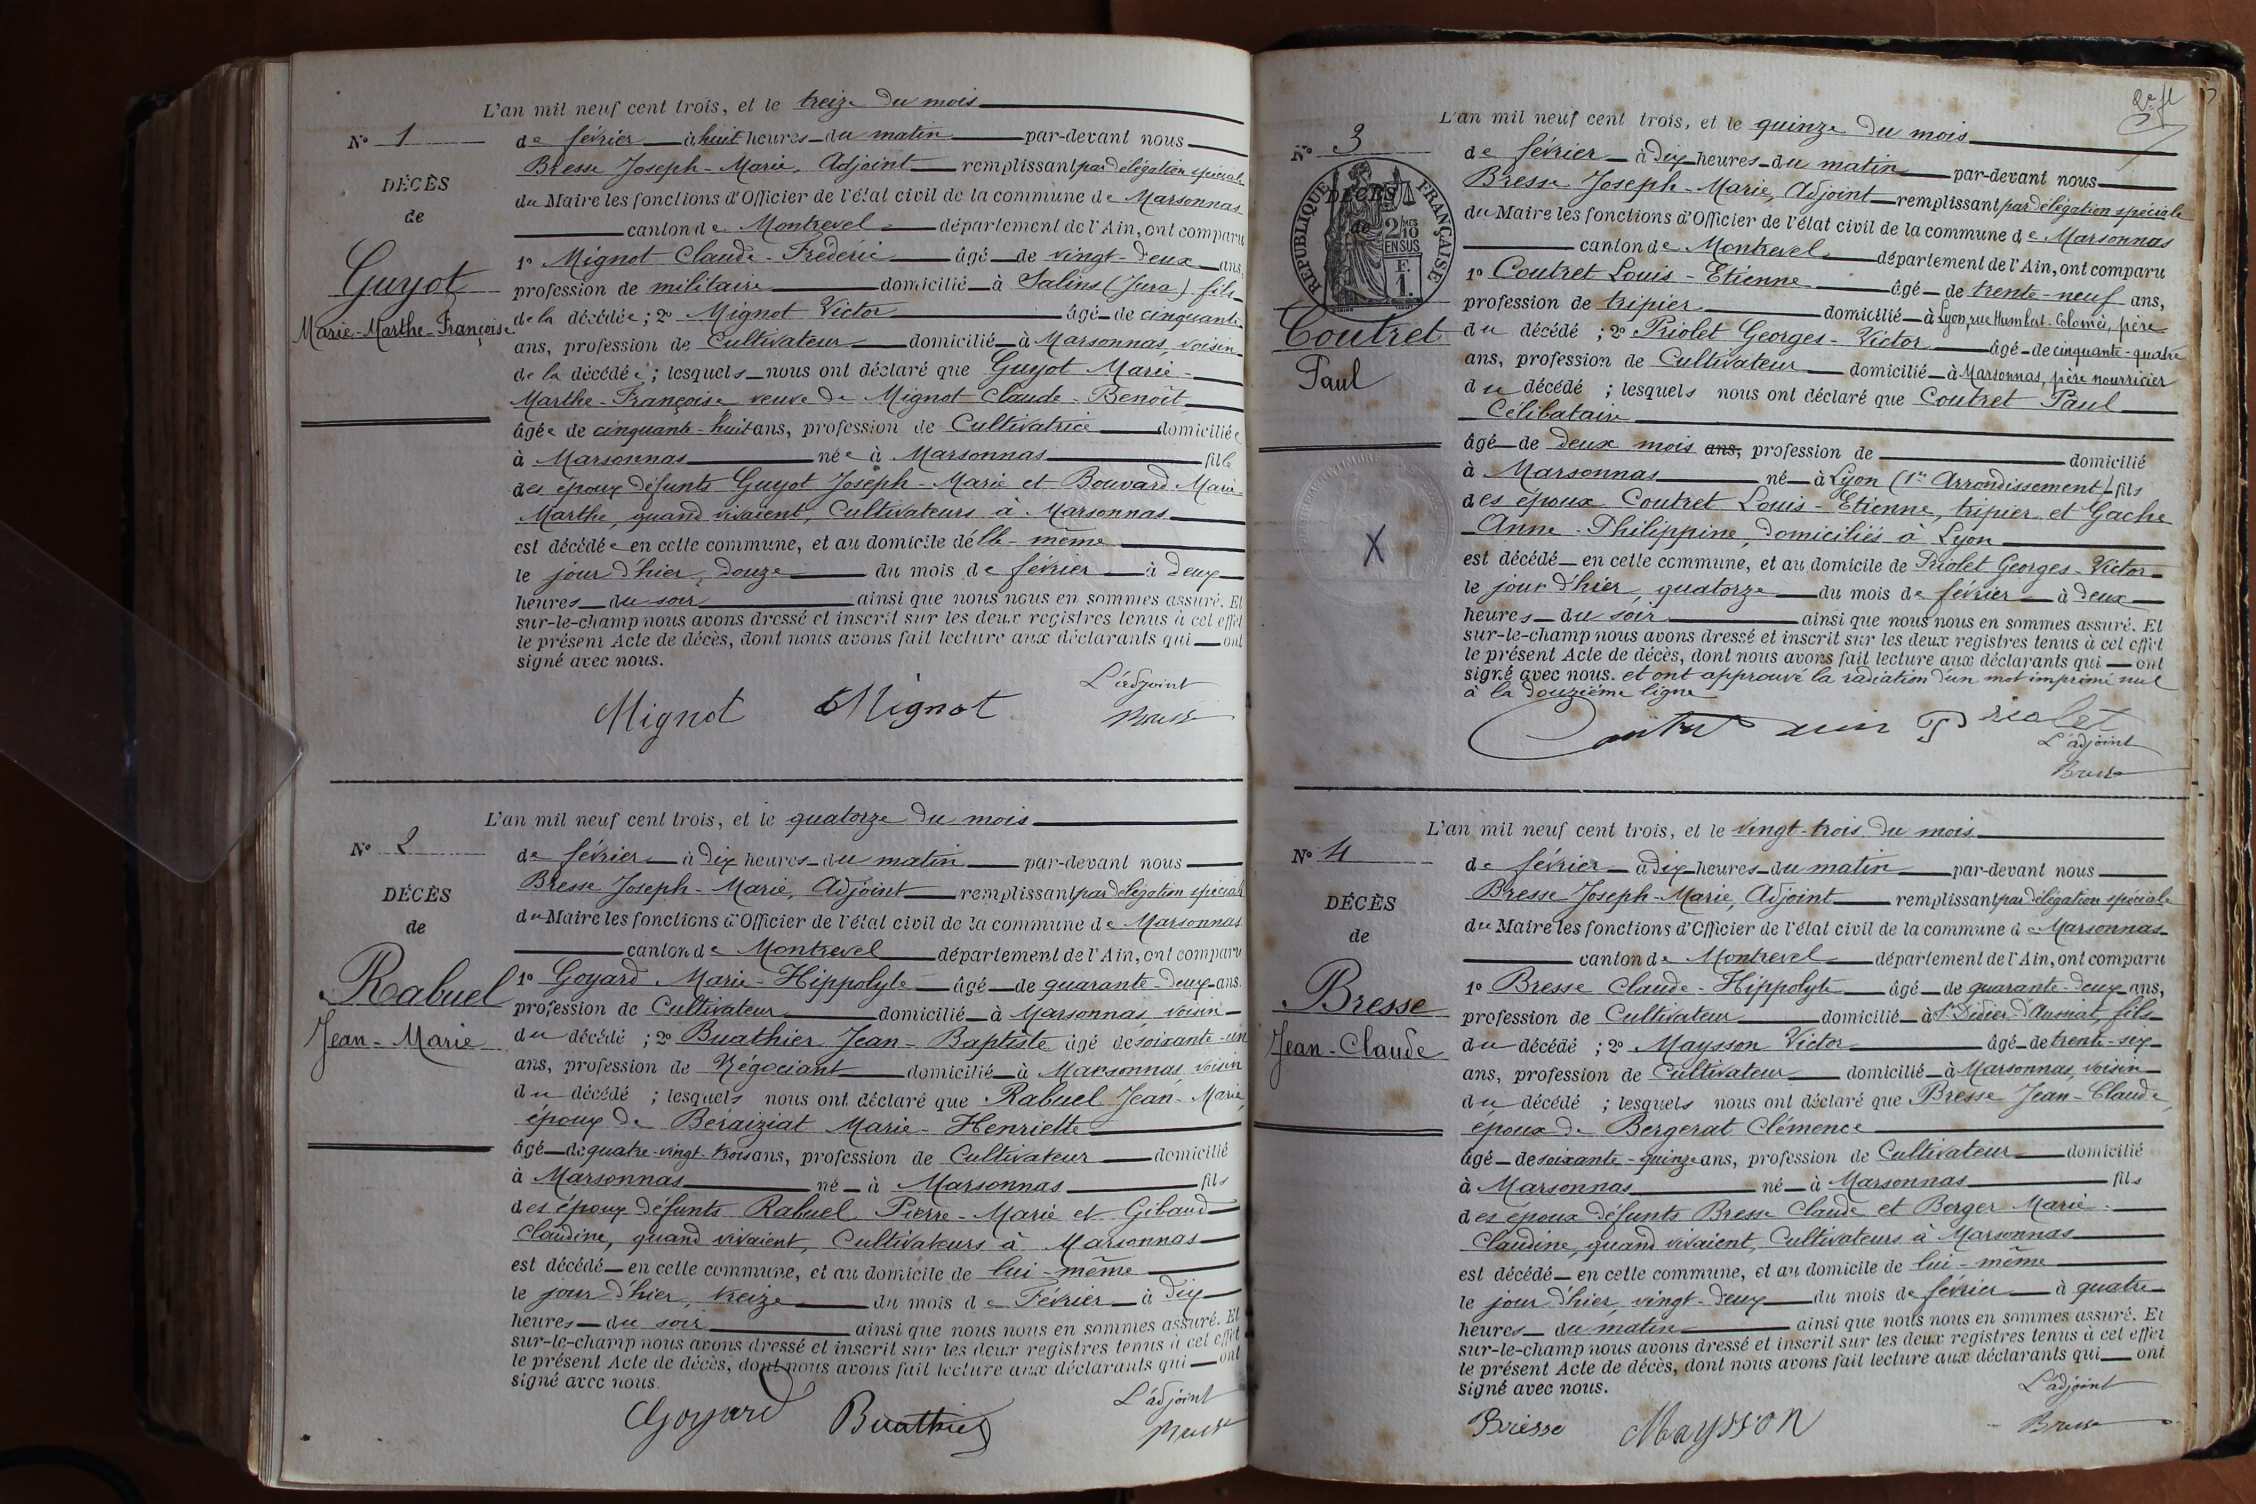 L'an mil neuf cent trois, et le treize du mois
N° 1
de février à huit heures du matin par-devant nous
Bresse Joseph-Marie, Adjoint remplissant par délégation spéciale
DÉCÈS
du Maire les fonctions d'Officier de l'état civil de la commune de Marsonnas
de
canton de Montrevel département de l'Ain, ont comparu
1° Mignot Claude-Frédéric âgé de vingt-deux ans,
Guyot
profession de militaire domicilié à Salins (Jura) fils
Marie-Marthe-Françoise
de la décédée ; 2° Mignot Victor âgé de cinquante
ans, profession de Cultivateur domicilié à Marsonnas, voisin
de la décédée ; lesquels nous ont déclaré que Guyot Marie-
Marthe-Françoise veuve de Mignot Claude-Benoît
âgée de cinquante-huit ans, profession de Cultivatrice domiciliée
à Marsonnas née à Marsonnas fille
des époux défunts Guyot Joseph-Marie et Bouvard Marie-
Marthe, quand vivaient, Cultivateurs à Marsonnas
est décédée en cette commune, et au domicile d'elle-même
le jour d'hier, douze du mois de février à deux
heures du soir ainsi que nous nous en sommes assuré. Et
sur-le-champ nous avons dressé et inscrit sur les deux registres tenus à cet effet
le présent Acte de décès, dont nous avons fait lecture aux déclarants qui ont
signé avec nous.
L'adjoint
Mignot Mignot Bresse
L'an mil neuf cent trois, et le quatorze du mois
N° 2
de février à dix heures du matin par-devant nous
Bresse Joseph-Marie, Adjoint remplissant par délégation spéciale
DÉCÈS
du Maire les fonctions d'Officier de l'état civil de la commune de Marsonnas
de
canton de Montrevel département de l'Ain, ont comparu
1° Goyard Marie-Hippolyte âgé de quarante-deux ans.
Rabuel
profession de Cultivateur domicilié à Marsonnas, voisin
Jean-Marie
du décédé ; 2° Buathier Jean-Baptiste âgé de soixante-un
ans, profession de Négociant domicilié à Marsonnas, voisin
du décédé ; lesquels nous ont déclaré que Rabuel Jean-Marie,
époux de Béraiziat Marie-Henriette
âgé de quatre-vingt-trois ans, profession de Cultivateur domicilié
à Marsonnas né à Marsonnas fils
des époux défunts Rabuel Pierre-Marie et Gibaud
Claudine, quand vivaient, Cultivateurs à Marsonnas
est décédé en cette commune, et au domicile de lui-même
le jour d'hier, treize du mois de Février à dix
heures du soir ainsi que nous nous en sommes assuré. Et
sur-le-champ nous avons dressé et inscrit sur les deux registres tenus à cet effet
le présent Acte de décès, dont nous avons fait lecture aux déclarants qui ont
signé avec nous.
L'adjoint
Goyard Buathier Bresse
L'an mil neuf cent trois, et le quinze du mois
N° 3
de février à dix heures du matin par-devant nous
Bresse Joseph-Marie, Adjoint remplissant par délégation spéciale
DÉCÈS
du Maire les fonctions d'Officier de l'état civil de la commune de Marsonnas
de
RÉPUBLIQUE FRANÇAISE
2/10
EN SUS
F.
1.
canton de Montrevel département de l'Ain, ont comparu
1° Coutret Louis-Etienne âgé de trente-neuf ans,
profession de tripier domicilié à Lyon, rue Humbert-Colomès, père
Coutret
du décédé ; 2° Priolet Georges-Victor âgé de cinquante-quatre
Paul
ans, profession de Cultivateur domicilié à Marsonnas, père nourricier
du décédé ; lesquels nous ont déclaré que Coutret Paul
Célibataire
âgé de deux mois ans, profession de domicilié
à Marsonnas né à Lyon (1er Arrondissement) fils
des époux Coutret Louis-Etienne, tripier et Gache
Anne-Philippine, domiciliés à Lyon
X
est décédé en cette commune, et au domicile de Priolet Georges-Victor
le jour d'hier, quatorze du mois de février à deux
heures du soir ainsi que nous nous en sommes assuré. Et
sur-le-champ nous avons dressé et inscrit sur les deux registres tenus à cet effet
le présent Acte de décès, dont nous avons fait lecture aux déclarants qui ont
signé avec nous. et ont approuvé la radiation d'un mot imprimé nul
à la douzième ligne
Priolet
L'adjoint
Bresse
L'an mil neuf cent trois, et le vingt-trois du mois
N° 4
de février à dix heures du matin par-devant nous
Bresse Joseph-Marie, Adjoint remplissant par délégation spéciale
DÉCÈS
du Maire les fonctions d'Officier de l'état civil de la commune de Marsonnas
de
canton de Montrevel département de l'Ain, ont comparu
1° Bresse Claude-Hippolyte âgé de quarante-deux ans,
Bresse
profession de Cultivateur domicilié à St Didier d'Aussiat, fils
Jean-Claude
du décédé ; 2° Maysson Victor âgé de trente-six
ans, profession de Cultivateur domicilié à Marsonnas, voisin
du décédé ; lesquels nous ont déclaré que Bresse Jean-Claude,
époux de Bergerat Clémence
âgé de soixante-quinze ans, profession de Cultivateur domicilié
à Marsonnas né à Marsonnas fils
des époux défunts Bresse Claude et Berger Marie-
Claudine, quand vivaient, Cultivateurs à Marsonnas
est décédé en cette commune, et au domicile de lui-même
le jour d'hier, vingt-deux du mois de février à quatre
heures du matin ainsi que nous nous en sommes assuré. Et
sur-le-champ nous avons dressé et inscrit sur les deux registres tenus à cet effet
le présent Acte de décès, dont nous avons fait lecture aux déclarants qui ont
signé avec nous.
L'adjoint
Bresse Maysson Bresse